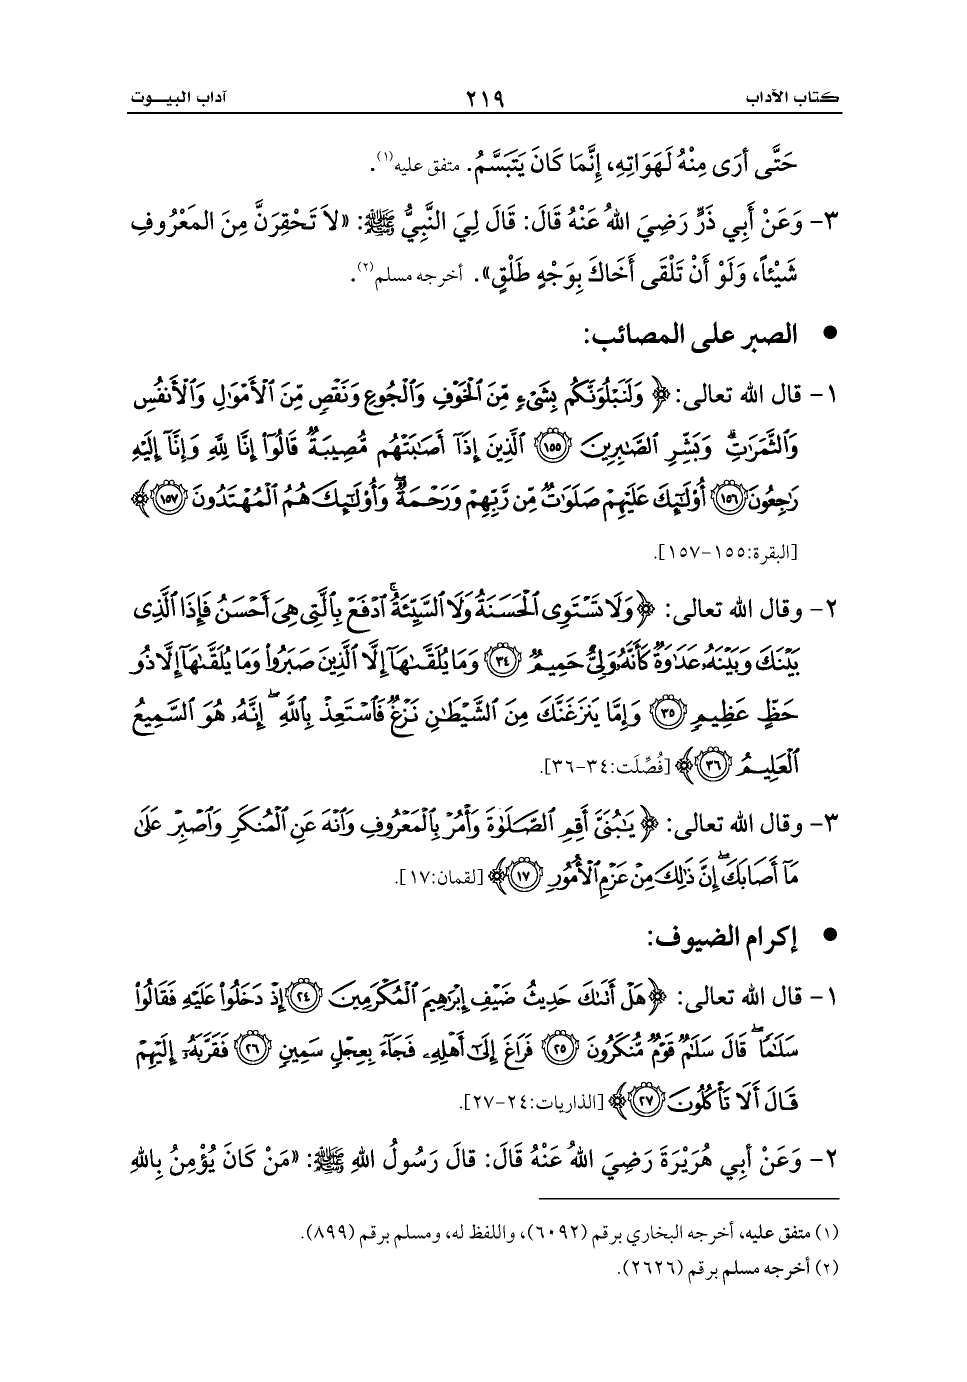 كتاب الآداب ٢١٩ آداب البيـــوت
حَتَّى أرَى مِنْهُ لَهَوَاتِهِ، إِنَّمَا كَانَ يَتَبَسَّمُ. متفق عليه(١).
٣- وَعَنْ أَبِي ذَرٍّ رَضِيَ اللهُ عَنْهُ قَالَ: قَالَ لِيَ النَّبِيُّ ﷺ: «لاَ تَحْقِرَنَّ مِنَ المَعْرُوفِ
شَيْئاً، وَلَوْ أَنْ تَلْقَى أَخَاكَ بِوَجْهٍ طَلْقٍ». أخرجه مسلم(٢).
● الصبر على المصائب:
١- قال الله تعالى: ﴿وَلَنَبْلُوَنَّكُم بِشَىْءٍ مِّنَ ٱلْخَوْفِ وَٱلْجُوعِ وَنَقْصٍ مِّنَ ٱلْأَمْوَٰلِ وَٱلْأَنفُسِ
وَٱلثَّمَرَٰتِ ۗ وَبَشِّرِ ٱلصَّٰبِرِينَ ١٥٥ ٱلَّذِينَ إِذَآ أَصَٰبَتْهُم مُّصِيبَةٌ قَالُوٓا۟ إِنَّا لِلَّهِ وَإِنَّآ إِلَيْهِ
رَٰجِعُونَ ١٥٦ أُو۟لَٰٓئِكَ عَلَيْهِمْ صَلَوَٰتٌ مِّن رَّبِّهِمْ وَرَحْمَةٌ ۖ وَأُو۟لَٰٓئِكَ هُمُ ٱلْمُهْتَدُونَ ١٥٧﴾
[البقرة:١٥٥-١٥٧].
٢- وقال الله تعالى: ﴿وَلَا تَسْتَوِى ٱلْحَسَنَةُ وَلَا ٱلسَّيِّئَةُ ۚ ٱدْفَعْ بِٱلَّتِى هِىَ أَحْسَنُ فَإِذَا ٱلَّذِى
بَيْنَكَ وَبَيْنَهُۥ عَدَٰوَةٌ كَأَنَّهُۥ وَلِىٌّ حَمِيمٌ ٣٤ وَمَا يُلَقَّىٰهَآ إِلَّا ٱلَّذِينَ صَبَرُوا۟ وَمَا يُلَقَّىٰهَآ إِلَّا ذُو
حَظٍّ عَظِيمٍ ٣٥ وَإِمَّا يَنزَغَنَّكَ مِنَ ٱلشَّيْطَٰنِ نَزْغٌ فَٱسْتَعِذْ بِٱللَّهِ ۖ إِنَّهُۥ هُوَ ٱلسَّمِيعُ
ٱلْعَلِيمُ ٣٦﴾ [فُصِّلَت:٣٤-٣٦].
٣- وقال الله تعالى: ﴿يَٰبُنَىَّ أَقِمِ ٱلصَّلَوٰةَ وَأْمُرْ بِٱلْمَعْرُوفِ وَٱنْهَ عَنِ ٱلْمُنكَرِ وَٱصْبِرْ عَلَىٰ
مَآ أَصَابَكَ ۖ إِنَّ ذَٰلِكَ مِنْ عَزْمِ ٱلْأُمُورِ ١٧﴾ [لقمان:١٧].
● إكرام الضيوف:
١- قال الله تعالى: ﴿هَلْ أَتَىٰكَ حَدِيثُ ضَيْفِ إِبْرَٰهِيمَ ٱلْمُكْرَمِينَ ٢٤ إِذْ دَخَلُوا۟ عَلَيْهِ فَقَالُوا۟
سَلَٰمًا ۖ قَالَ سَلَٰمٌ قَوْمٌ مُّنكَرُونَ ٢٥ فَرَاغَ إِلَىٰٓ أَهْلِهِۦ فَجَآءَ بِعِجْلٍ سَمِينٍ ٢٦ فَقَرَّبَهُۥٓ إِلَيْهِمْ
قَالَ أَلَا تَأْكُلُونَ ٢٧﴾ [الذاريات:٢٤-٢٧].
٢- وَعَنْ أَبِي هُرَيْرَةَ رَضِيَ اللهُ عَنْهُ قَالَ: قالَ رَسُولُ اللهِ ﷺ: «مَنْ كَانَ يُؤْمِنُ بِاللهِ
(١) متفق عليه، أخرجه البخاري برقم (٦٠٩٢)، واللفظ له، ومسلم برقم (٨٩٩).
(٢) أخرجه مسلم برقم (٢٦٢٦).